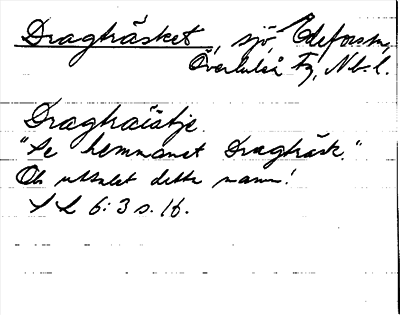 Dragträsket, sjö, Edefors sn,
Överluleå tg, Nb. l.
Dragträsktje.
"Se hemmanet Dragträsk."
Ob. uttalet detta namn!
S L 6:3 s. 16.